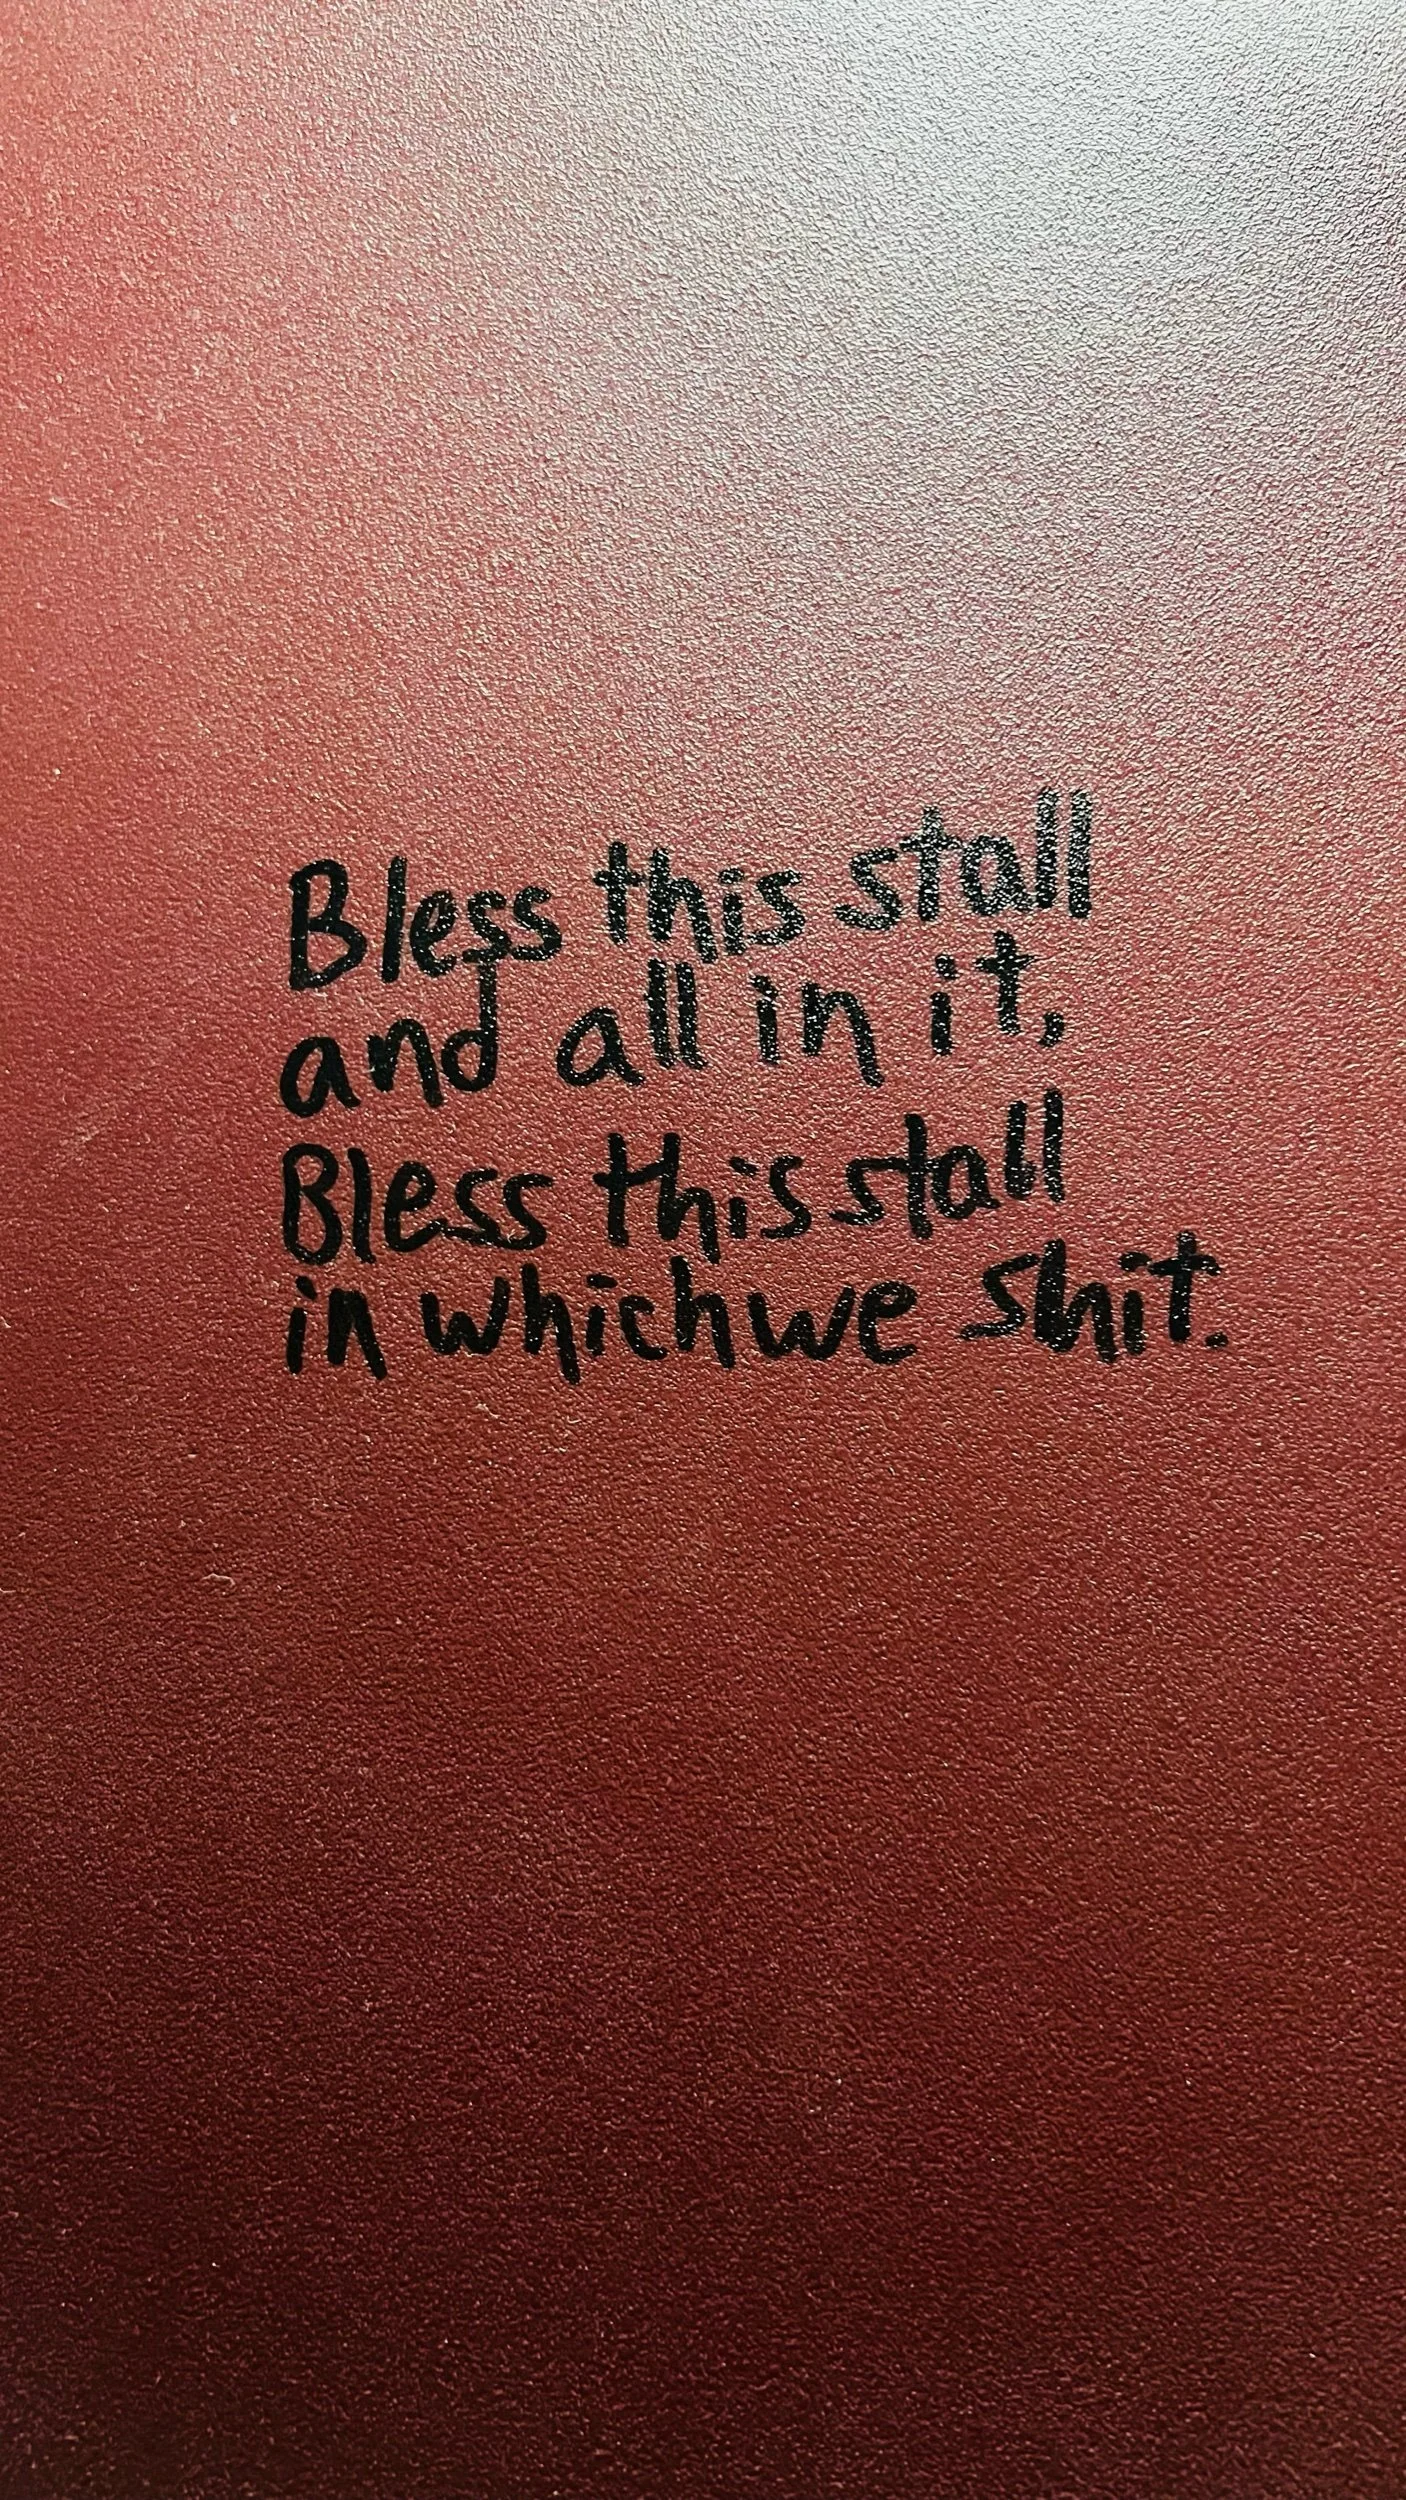 Bless this stall
and all in it,
Bless this stall
in which we shit.